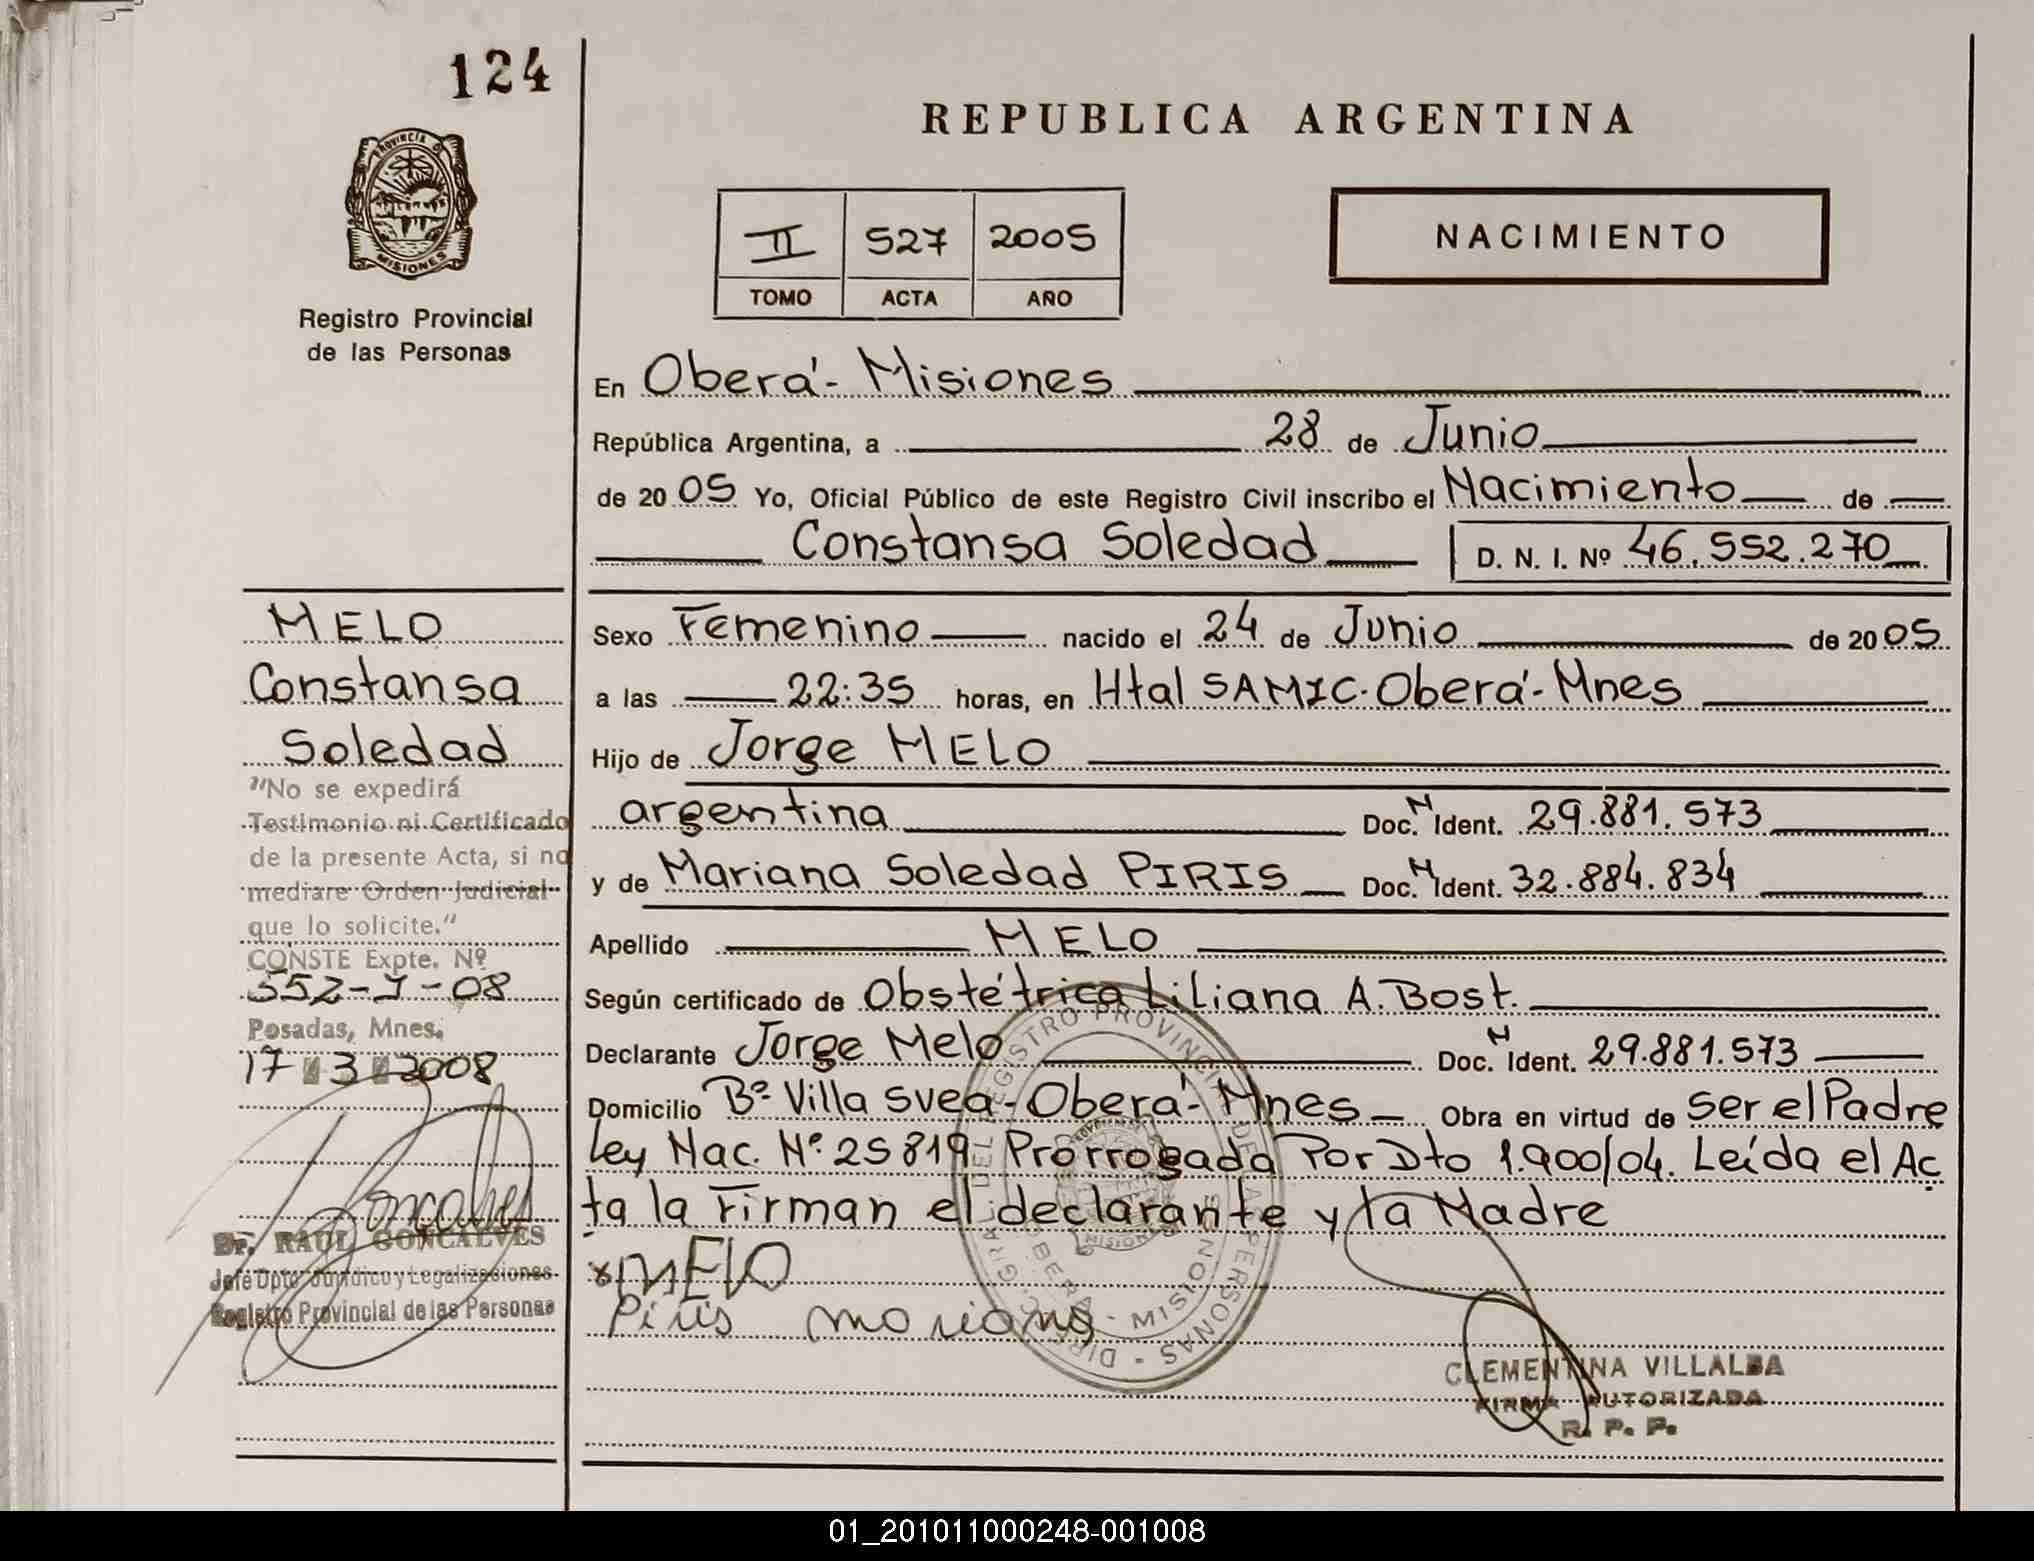 124
PROVINCIA D
MISIONES
Registro Provincial
de las Personas
REPUBLICA ARGENTINA
II 527 2005
TOMO ACTA AÑO
NACIMIENTO
En Oberá- Misiones
República Argentina, a 28 de Junio
de 2005 Yo, Oficial Público de este Registro Civil inscribo el Nacimiento de
Constansa Soledad D. N. I. Nº 46.552.270
Sexo Femenino nacido el 24 de Junio de 2005
a las 22:35 horas, en Htal SAMIC. Oberá- Mnes
Hijo de Jorge MELO
argentina Doc. N Ident. 29.881.573
y de Mariana Soledad PIRIS Doc. N Ident. 32.884.834
Apellido MELO
Según certificado de Obstétrica Liliana A. Bost.
Declarante Jorge Melo Doc. N Ident. 29.881.573
Domicilio Bº Villa Svea- Oberá- Mnes Obra en virtud de Ser el Padre
Ley Nac. Nº 25819 Prorrogada Por Dto 1.900/04. Leída el Ac
ta la Firman el declarante y la Madre
x MELO
Piris mariana
DIREC. GRAL. DEL REGISTRO PROVINCIAL DE LAS PERSONAS
OBERA - MISIONES
MISIONES
CLEMENTINA VILLALBA
FIRMA AUTORIZADA
R. P. P.
MELO
Constansa
Soledad
"No se expedirá
Testimonio ni Certificado
de la presente Acta, si no
mediare Orden Judicial
que lo solicite."
CONSTE Expte. Nº
552-J-08
Posadas, Mnes.
17 3 2008
Goncalves
Dr. RAUL GONCALVES
Jefe Dpto. Jurídico y Legalizaciones
Registro Provincial de las Personas
01_201011000248-001008